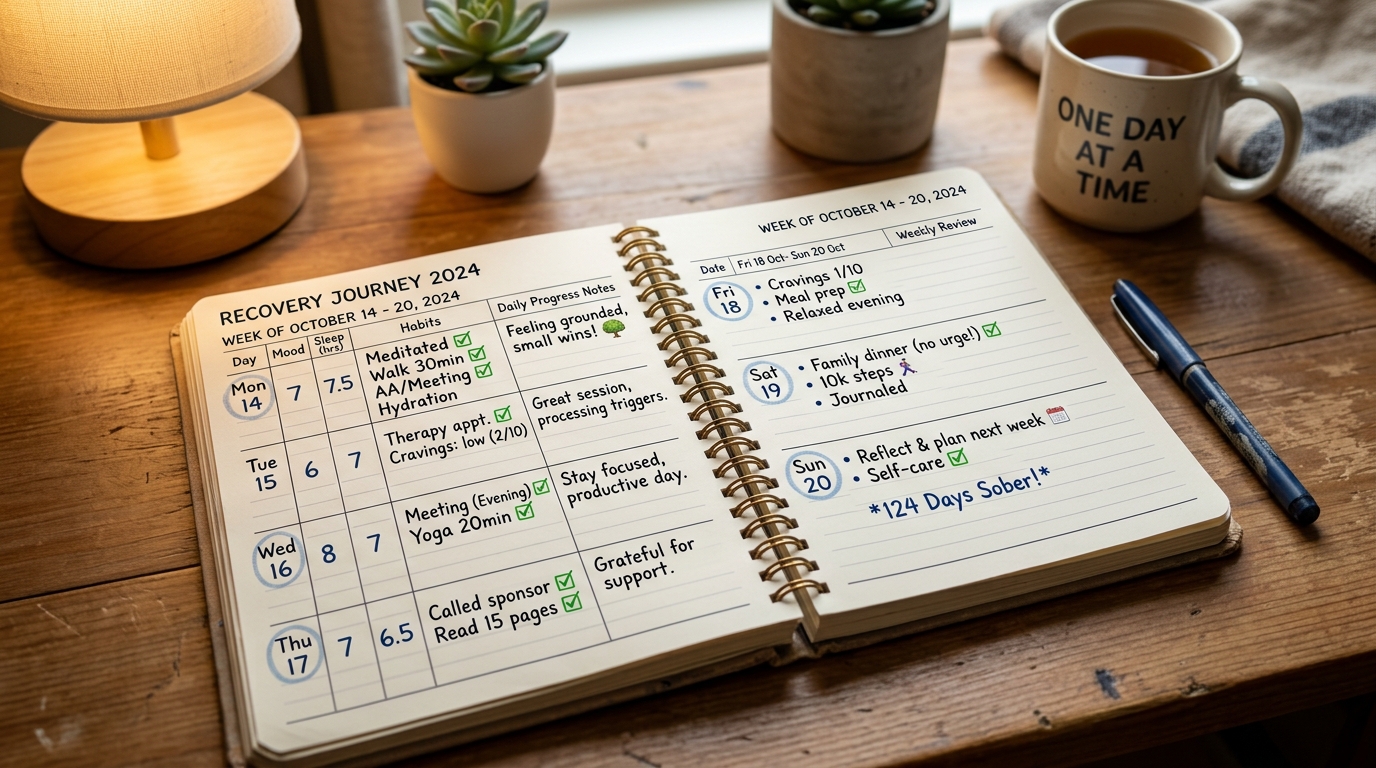 RECOVERY JOURNEY 2024
WEEK OF OCTOBER 14 - 20, 2024
Day
Mood
Sleep
(hrs)
Habits
Daily Progress Notes
Mon
14
7
7.5
Meditated ✅
Walk 30min ✅
AA/Meeting ✅
Hydration
Feeling grounded,
small wins! 🌳
Tue
15
6
7
Therapy appt. ✅
Cravings: low (2/10)
Great session,
processing triggers.
Wed
16
8
7
Meeting (Evening) ✅
Yoga 20min ✅
Stay focused,
productive day.
Thu
17
7
6.5
Called sponsor ✅
Read 15 pages ✅
Grateful for
support.
WEEK OF OCTOBER 14 - 20, 2024
Date
Fri 18 Oct- Sun 20 Oct
Weekly Review
Fri
18
• Cravings 1/10
• Meal prep ✅
• Relaxed evening
Sat
19
• Family dinner (no urge!) ✅
• 10k steps 🚶‍♀️
• Journaled
Sun
20
• Reflect & plan next week 📅
• Self-care ✅
*124 Days Sober!*
ONE DAY
AT A
TIME